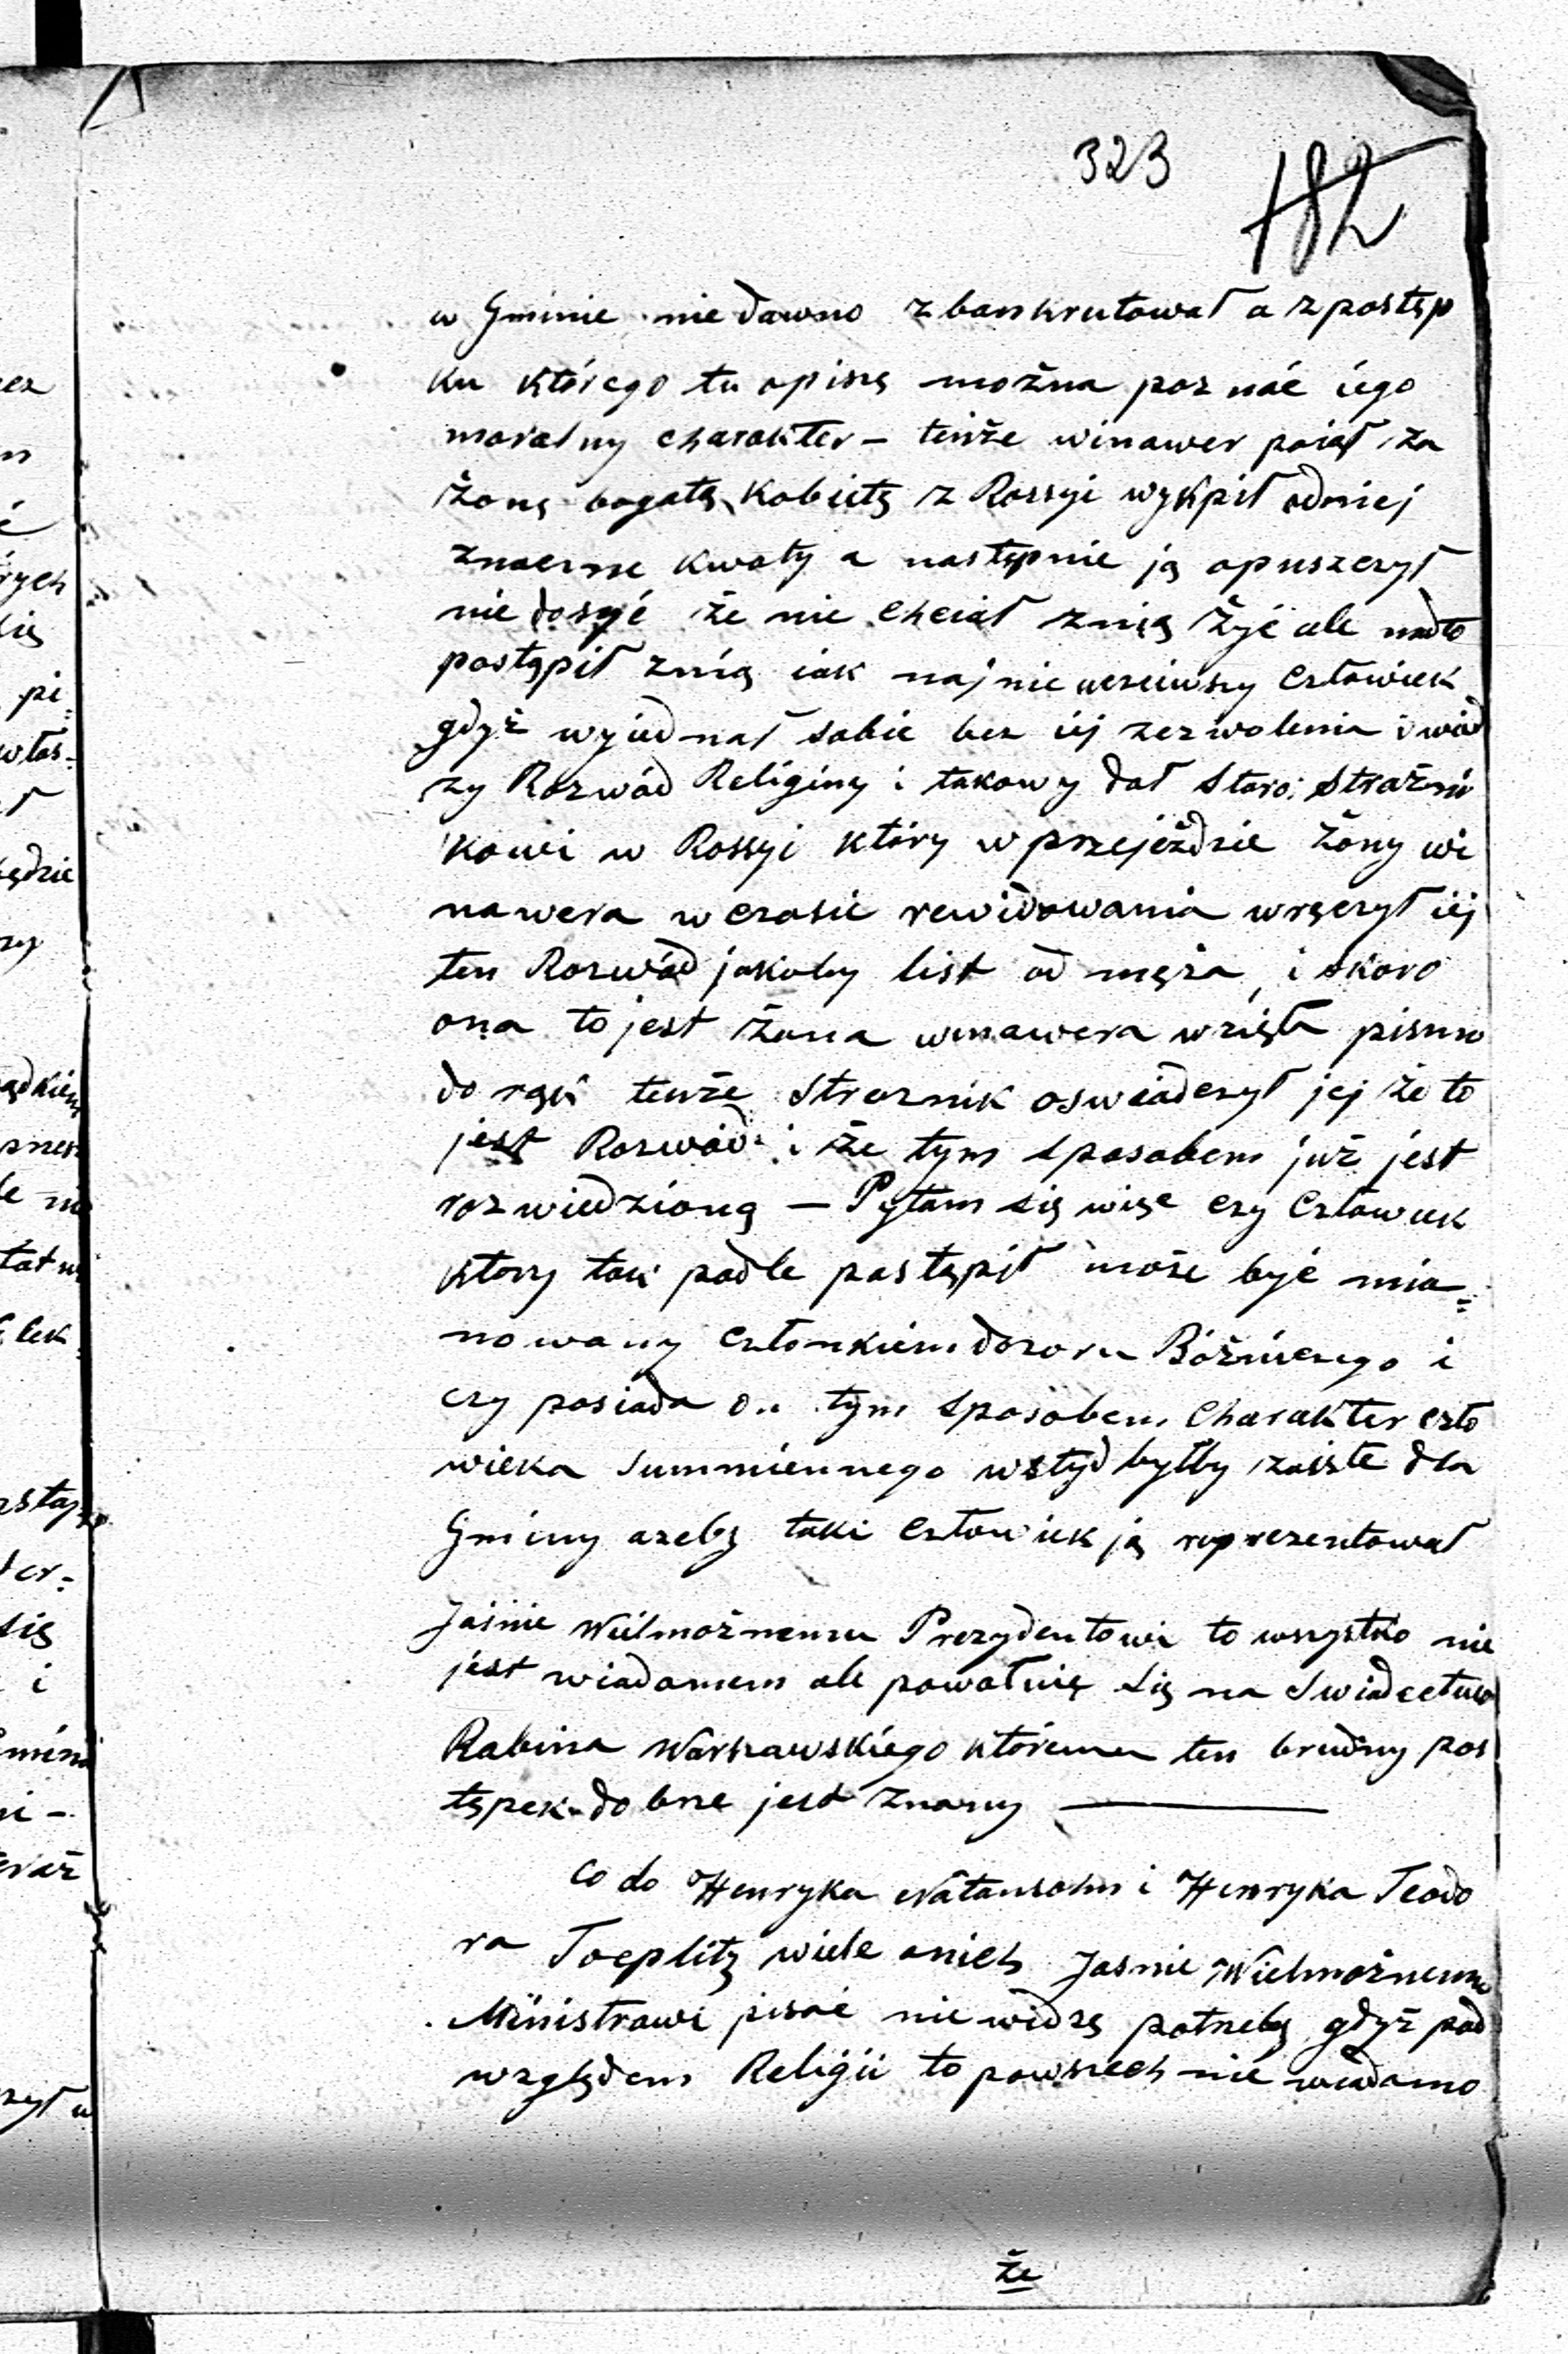 323
182
w Gminie nie dawno zbankrutował a z postęp
ku którego tu opiszę można poznać iego
moralny charakter – tenże winawer poiął za
żonę bogatą Kobietę z Rossyi wykpił odniej
znaczne kwoty a następnie ją opuszczył
nie dosyć że nie chciał znią żyć ale nadto
postąpił znią iak najnieuczciwszy Człowiek
gdyż wyiednał sobie bez iéj zezwolenia i wied
zy Rozwód Religiny i takowy dał Staro: Strażni
kowi w Rossyi który w przejeździe żony wi
nawera w czasie rewidowania wręczył iéj
ten Rozwód jakoby list od męża, i skoro
ona to jest żona winawera wzięła pismo
do ręki tenże Straznik oswiadczył jej że to
jest Rozwód i że tym sposobem już jest
rozwiedzioną – Pytam się więc czy Człowiek
ktory tak podle postąpił może być mia=
nowany członkiem dozoru Bóżniczego i
czy posiada on tym sposobem Charakter czło
wieka Summiennego wstyd byłby zaiste dla
Gminy azeby taki Człowiek ją reprezentował
Jaśnie Wielmożnemu Prezydentowi to wszystko nie
jest wiadomem ale powołuię się na Swiadectwo
Rabina Warszawskiégo któremu ten brudny pos
tępek dobrze jest znany —
Co do Henryka Natansohn i Henryka Teodo
ra Toeplitz wiele onich Jasnie Wielmożnemu
Ministrowi pisać nie widzę potrzeby gdyż pod
względem Religii to powszechnie wiadomo
że